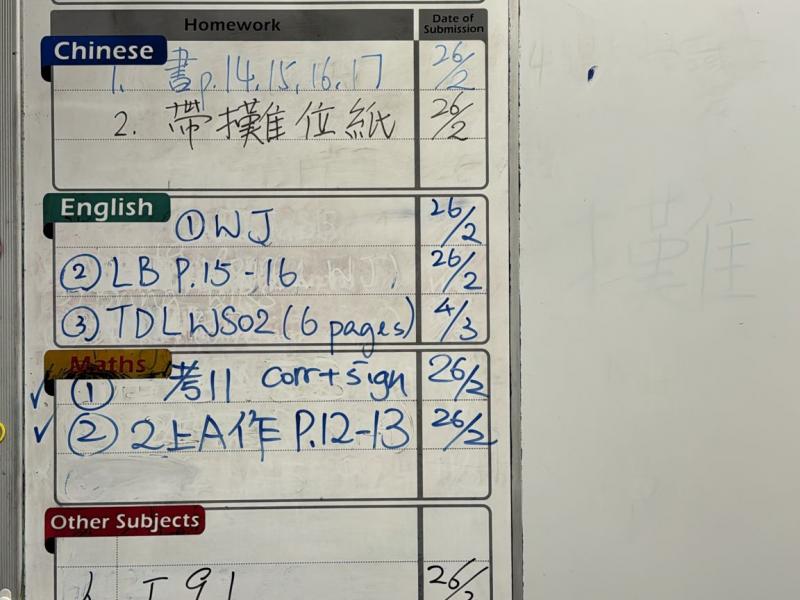 Homework Date of Submission
Chinese
1. 書p.14,15,16,17 26/2
2. 帶攤位紙 26/2
English
① WJ 26/2
② LB P.15-16 26/2
③ TDLWS02 (6 pages) 4/3
Maths
✓ ① 考11 corr+sign 26/2
✓ ② 2上A作 P.12-13 26/2
Other Subjects
26/2
攤